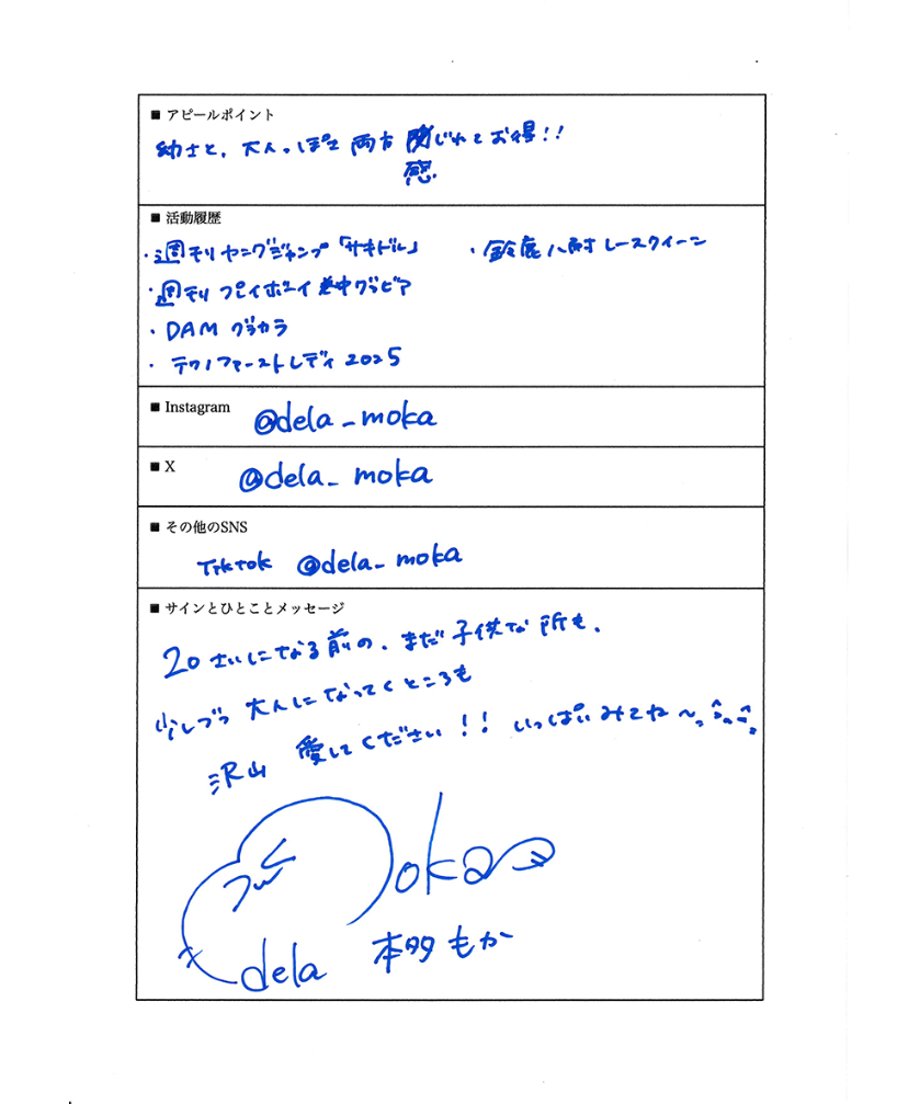 ■ アピールポイント
幼さと、大人っぽさ 両方 感じれてお得!!
■ 活動履歴
・週刊ヤングジャンプ「サキドル」
・鈴鹿8耐 レースクイーン
・週刊プレイボーイ 夢中グラビア
・DAM グラカラ
・テクノファーストレディ 2025
■ Instagram
@dela_moka
■ X
@dela_moka
■ その他のSNS
TikTok @dela_moka
■ サインとひとことメッセージ
20さいになる前の、まだ子供な所も、
少しづつ 大人になってくところも
沢山 愛してください!! いっぱいみてね〜
Moka
dela 本多もか